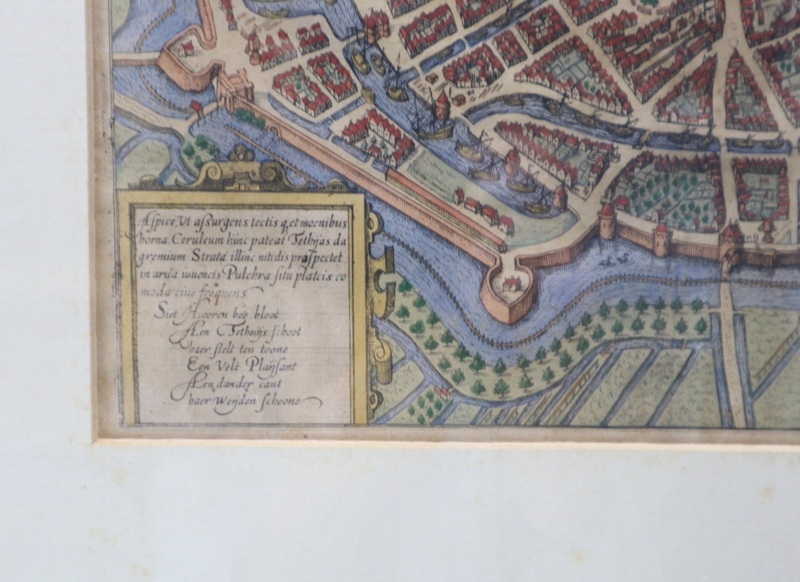 Aspice, Ut assurgens tectis q, et moenibus
horna. Ceruleum hinc pateat Tethijas da
gremium Strata illinc nitidis prospectet
in arua iuuencis Pulchra situ plateis co
moda ciue frequens
Siet Hooren hoe bloot
Aen Tethuijs schoot
haer stelt ten toone
Een Velt Plaijsant
Aen dander cant
haer Weijden schoone